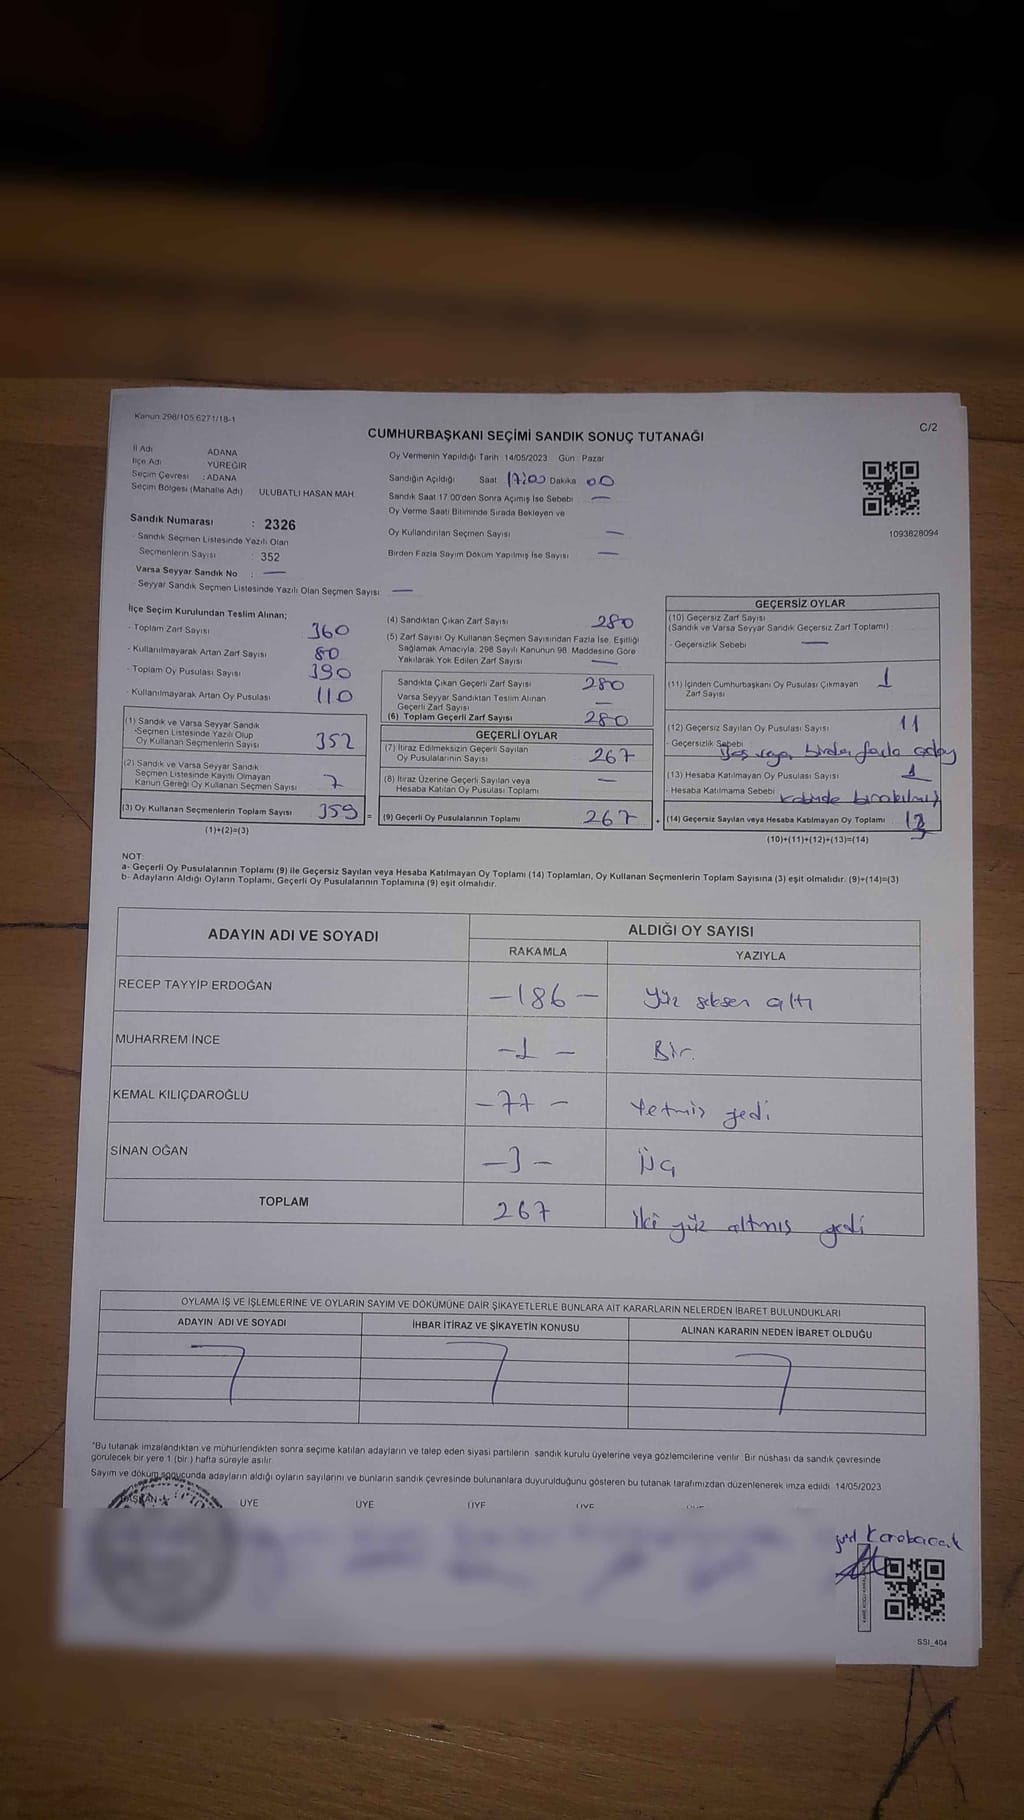 Kanun 298/105 6271/18-1
C/2
CUMHURBAŞKANI SEÇİMİ SANDIK SONUÇ TUTANAĞI
İl Adı ADANA
İlçe Adı YÜREĞİR
Seçim Çevresi : ADANA
Seçim Bölgesi (Mahalle Adı) ULUBATLI HASAN MAH.
Sandık Numarası : 2326
- Sandık Seçmen Listesinde Yazılı Olan
Seçmenlerin Sayısı : 352
Varsa Seyyar Sandık No : —
- Seyyar Sandık Seçmen Listesinde Yazılı Olan Seçmen Sayısı: —
Oy Vermenin Yapıldığı Tarih 14/05/2023 Gün : Pazar
Sandığın Açıldığı Saat 17:00 Dakika 00
Sandık Saat 17.00'den Sonra Açılmış İse Sebebi —
Oy Verme Saati Bitiminde Sırada Bekleyen ve
Oy Kullandırılan Seçmen Sayısı —
Birden Fazla Sayım Döküm Yapılmış İse Sayısı —
1093828094
İlçe Seçim Kurulundan Teslim Alınan;
- Toplam Zarf Sayısı 360
- Kullanılmayarak Artan Zarf Sayısı 80
- Toplam Oy Pusulası Sayısı 390
- Kullanılmayarak Artan Oy Pusulası 110
(1) Sandık ve Varsa Seyyar Sandık
Seçmen Listesinde Yazılı Olup
Oy Kullanan Seçmenlerin Sayısı 352
(2) Sandık ve Varsa Seyyar Sandık
Seçmen Listesinde Kayıtlı Olmayan
Kanun Gereği Oy Kullanan Seçmen Sayısı 7
(3) Oy Kullanan Seçmenlerin Toplam Sayısı 359 =
(1)+(2)=(3)
(4) Sandıktan Çıkan Zarf Sayısı 280
(5) Zarf Sayısı Oy Kullanan Seçmen Sayısından Fazla İse, Eşitliği
Sağlamak Amacıyla, 298 Sayılı Kanunun 98. Maddesine Göre
Yakılarak Yok Edilen Zarf Sayısı —
Sandıkta Çıkan Geçerli Zarf Sayısı 280
Varsa Seyyar Sandıktan Teslim Alınan
Geçerli Zarf Sayısı —
(6) Toplam Geçerli Zarf Sayısı 280
GEÇERLİ OYLAR
(7) İtiraz Edilmeksizin Geçerli Sayılan
Oy Pusulalarının Sayısı 267
(8) İtiraz Üzerine Geçerli Sayılan veya
Hesaba Katılan Oy Pusulası Toplamı —
(9) Geçerli Oy Pusulalarının Toplamı 267 +
GEÇERSİZ OYLAR
(10) Geçersiz Zarf Sayısı
(Sandık ve Varsa Seyyar Sandık Geçersiz Zarf Toplamı) :
- Geçersizlik Sebebi —
(11) İçinden Cumhurbaşkanı Oy Pusulası Çıkmayan
Zarf Sayısı 1
(12) Geçersiz Sayılan Oy Pusulası Sayısı 11
- Geçersizlik Sebebi Boş veya birden fazla aday
(13) Hesaba Katılmayan Oy Pusulası Sayısı 1
- Hesaba Katılmama Sebebi kabinde bırakılmış
(14) Geçersiz Sayılan veya Hesaba Katılmayan Oy Toplamı 13
(10)+(11)+(12)+(13)=(14)
NOT:
a- Geçerli Oy Pusulalarının Toplamı (9) ile Geçersiz Sayılan veya Hesaba Katılmayan Oy Toplamı (14) Toplamları, Oy Kullanan Seçmenlerin Toplam Sayısına (3) eşit olmalıdır. (9)+(14)=(3)
b- Adayların Aldığı Oyların Toplamı, Geçerli Oy Pusulalarının Toplamına (9) eşit olmalıdır.
ADAYIN ADI VE SOYADI ALDIĞI OY SAYISI
RAKAMLA YAZIYLA
RECEP TAYYİP ERDOĞAN –186– Yüz seksen altı
MUHARREM İNCE –1– Bir.
KEMAL KILIÇDAROĞLU –77– Yetmiş yedi
SİNAN OĞAN –3– Üç
TOPLAM 267 İki yüz altmış yedi
OYLAMA İŞ VE İŞLEMLERİNE VE OYLARIN SAYIM VE DÖKÜMÜNE DAİR ŞİKAYETLERLE BUNLARA AİT KARARLARIN NELERDEN İBARET BULUNDUKLARI
ADAYIN ADI VE SOYADI İHBAR İTİRAZ VE ŞİKAYETİN KONUSU ALINAN KARARIN NEDEN İBARET OLDUĞU
*Bu tutanak imzalandıktan ve mühürlendikten sonra seçime katılan adayların ve talep eden siyasi partilerin sandık kurulu üyelerine veya gözlemcilerine verilir. Bir nüshası da sandık çevresinde
görülecek bir yere 1 (bir ) hafta süreyle asılır.
Sayım ve döküm sonucunda adayların aldığı oyların sayılarını ve bunların sandık çevresinde bulunanlara duyurulduğunu gösteren bu tutanak tarafımızdan düzenlenerek imza edildi. 14/05/2023
BAŞKAN ÜYE ÜYE ÜYE ÜYE
Karabacak
SSI_404